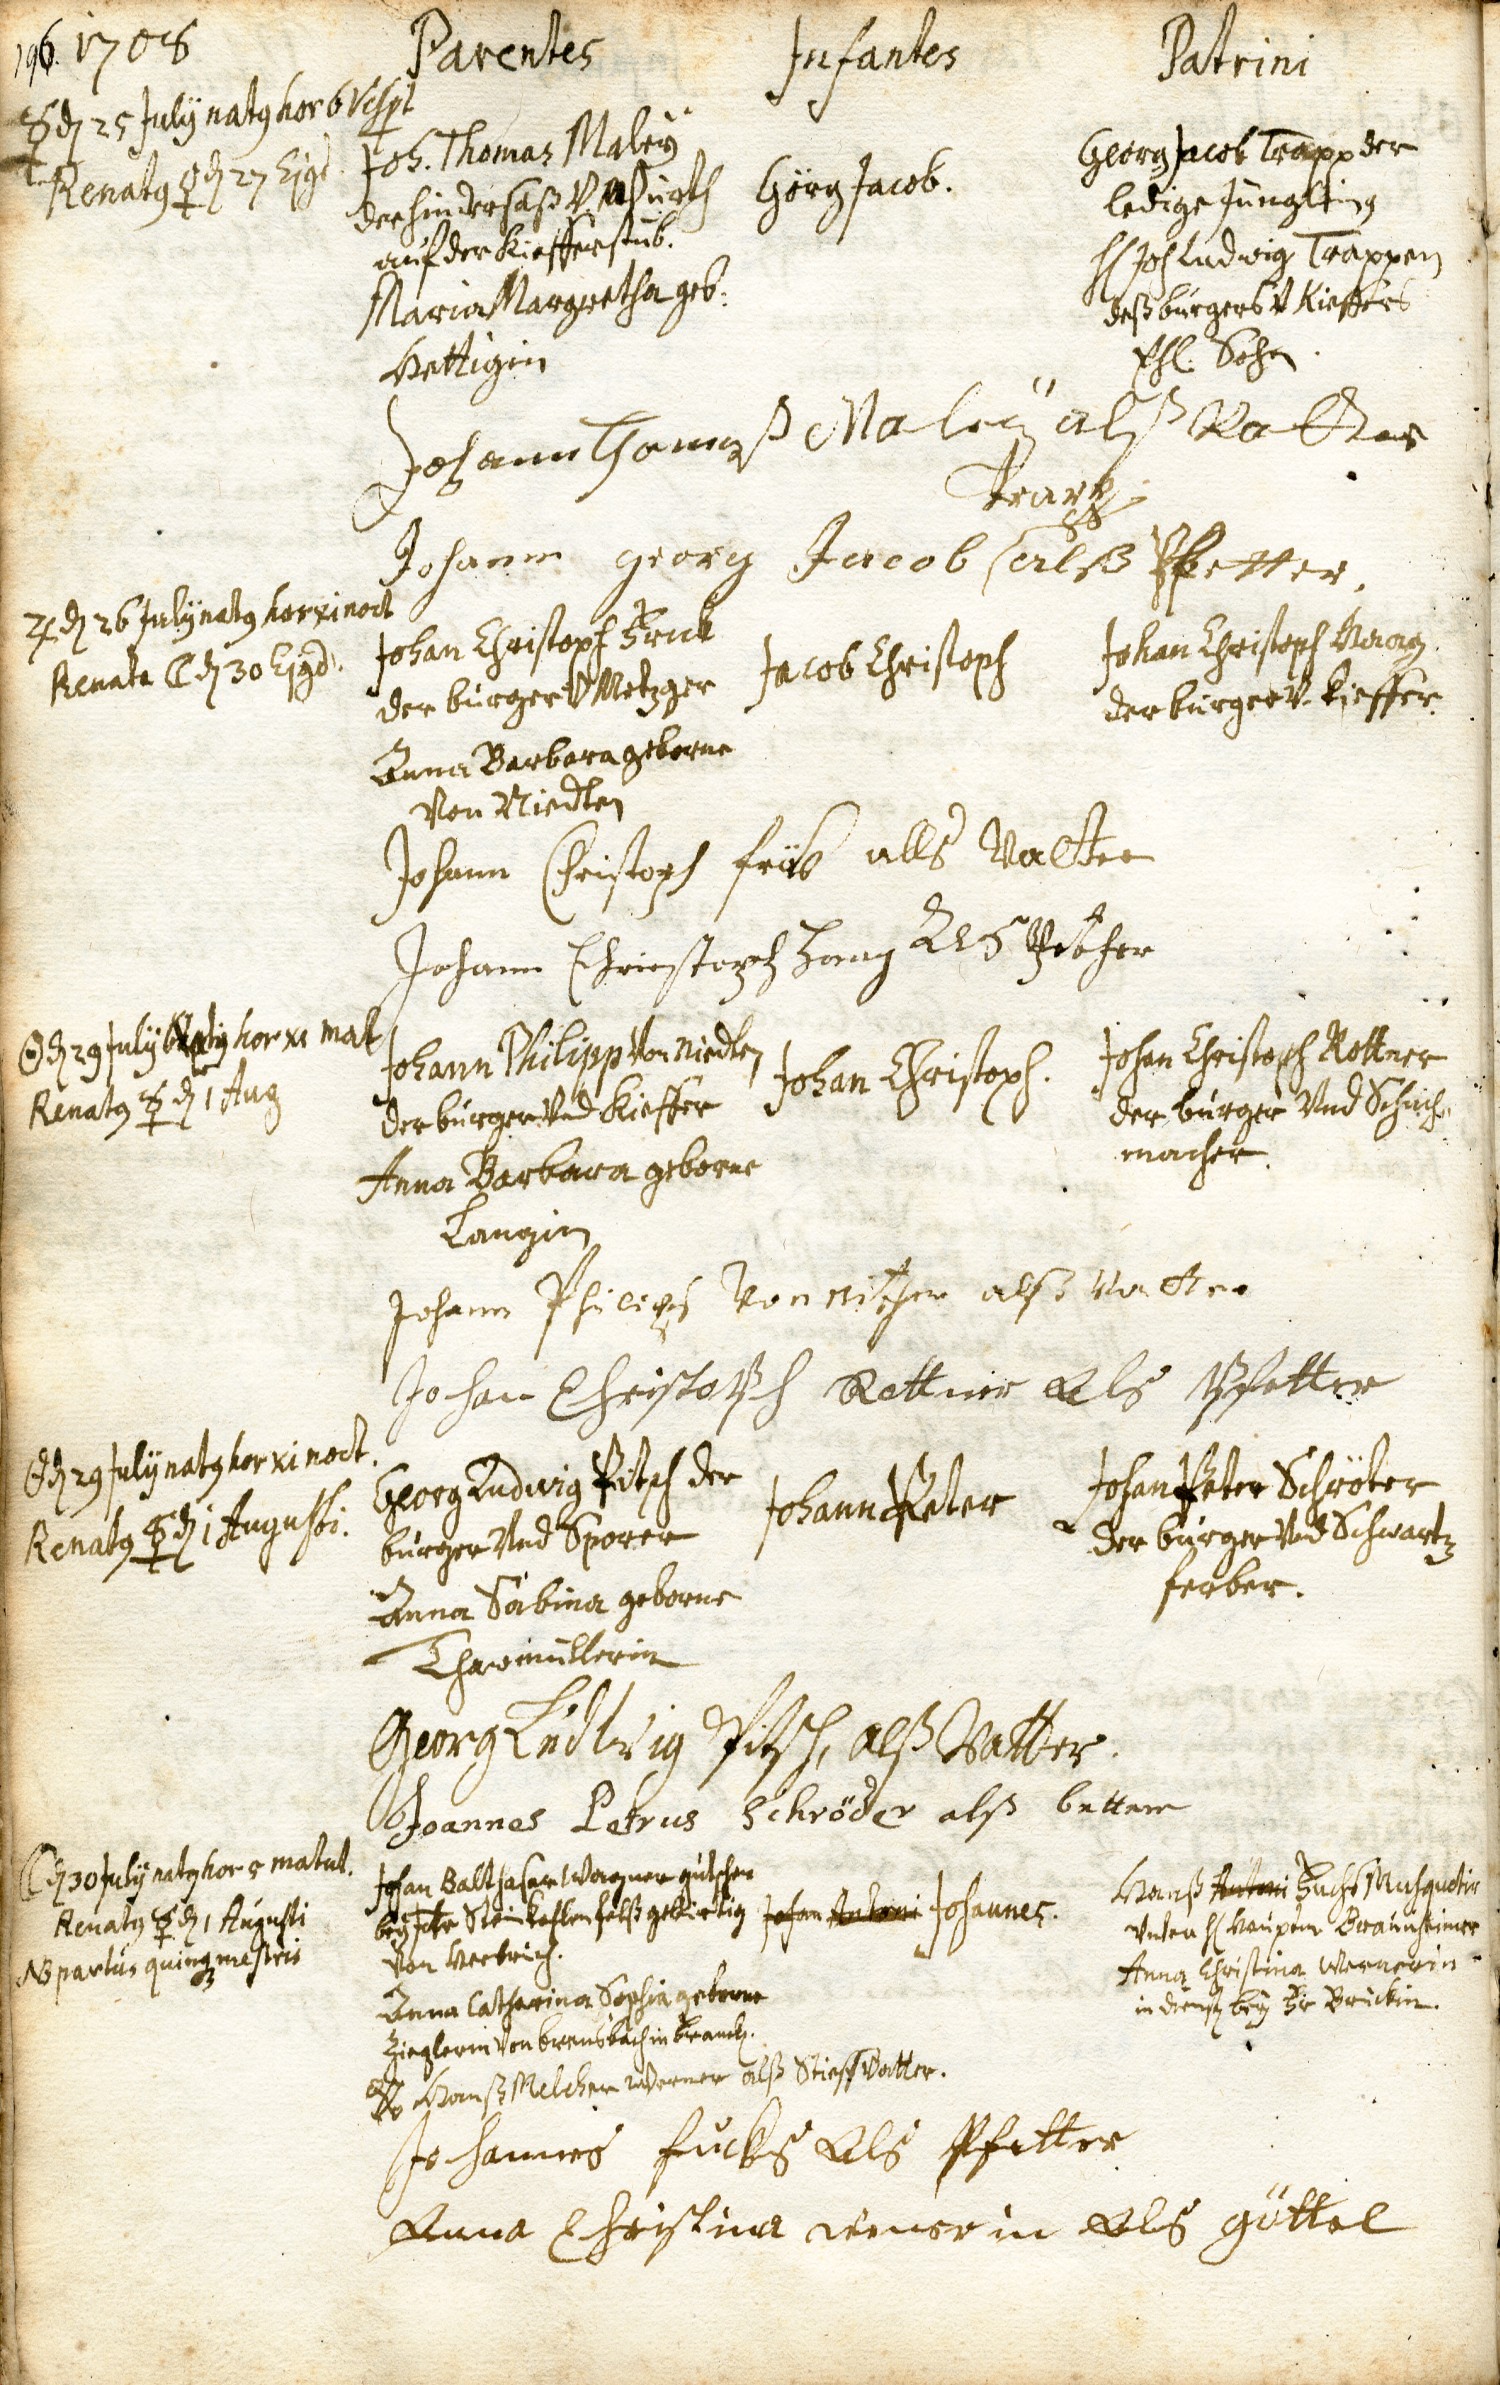 196. 1708
Parentes
Infantes
Patrini
☿ dῃ 25 July nat9 hor 6 Vesp
Renat9 ♀ dῃ 27 Ejgd.
Joh. Thomas Maleÿ
der hindersaß V Würth
auf der Kiefferstub.
Maria Margretha geb:
Hettigin
Görg Jacob.
Georg Jacob Trapp der
ledige Jüngling
H Joh Ludwig Trappen
deß burgers V Kieffers
Ehl. Sohn.
Johann Thomaß Maleÿ alß Vatter
Trapp
Johann georg Jacob alß Pfetter,
♃ dῃ 26 July nat9 hor xi noct
Renata ☾ dῃ 30 Ejgd.
Johan Christoph
der burger V Metzger
Anna Barbara geborne
Von Niedten
Jacob Christoph
Johan Christoph Haag
der burger V. Kieffer.
Johann Christoph alls Vatter
Johann Christoph Haag Als
☉ dῃ 29 July nat9 hor xi mat
Renat9 ☿ dῃ 1 Aug
Johann Philipp Von Niedten
der burger Und Kieffer
Anna Barbara geborne
Langin
Johan Christoph.
Johan Christoph Rottner
der burger Und Schuch
macher.
Johann Philips Von alß Vatter
Johan Christoph Rettner Als Pfetter
☉ dῃ 29 July nat9 hor xi noct.
Renat9 ☿ dῃ 1 Augusti.
Georg Ludwig Pitsch der
burger Und Sporer
Anna Sabina geborne
Johann Peter
Johan Peter Schröter
der burger Und Schwartz
ferber.
Georg Ludwig Pitsch, alß Vatter.
Joannes Petrus Schröder alß bettern
☾ dῃ 30 July nat9 hor 5 matut.
Renat9 ☿ dῃ 1 Augusti
NB partus quinq mestris
Johan Balthasar Wagner gutscher
beÿ gebirtig
Von
Anna Catharina Sophia geborne
Zieglerin Von
Johan Antoni Johannes.
Hanß Antoni Fuchs Musquetir
Unter H
Anna Christina Wernerin
in dienst beÿ Fr Bruckin.
Hanß Melcher Werner alß Stieff Vatter.
Johannes fucks Als Pfetter
Anna Christina Als göttel